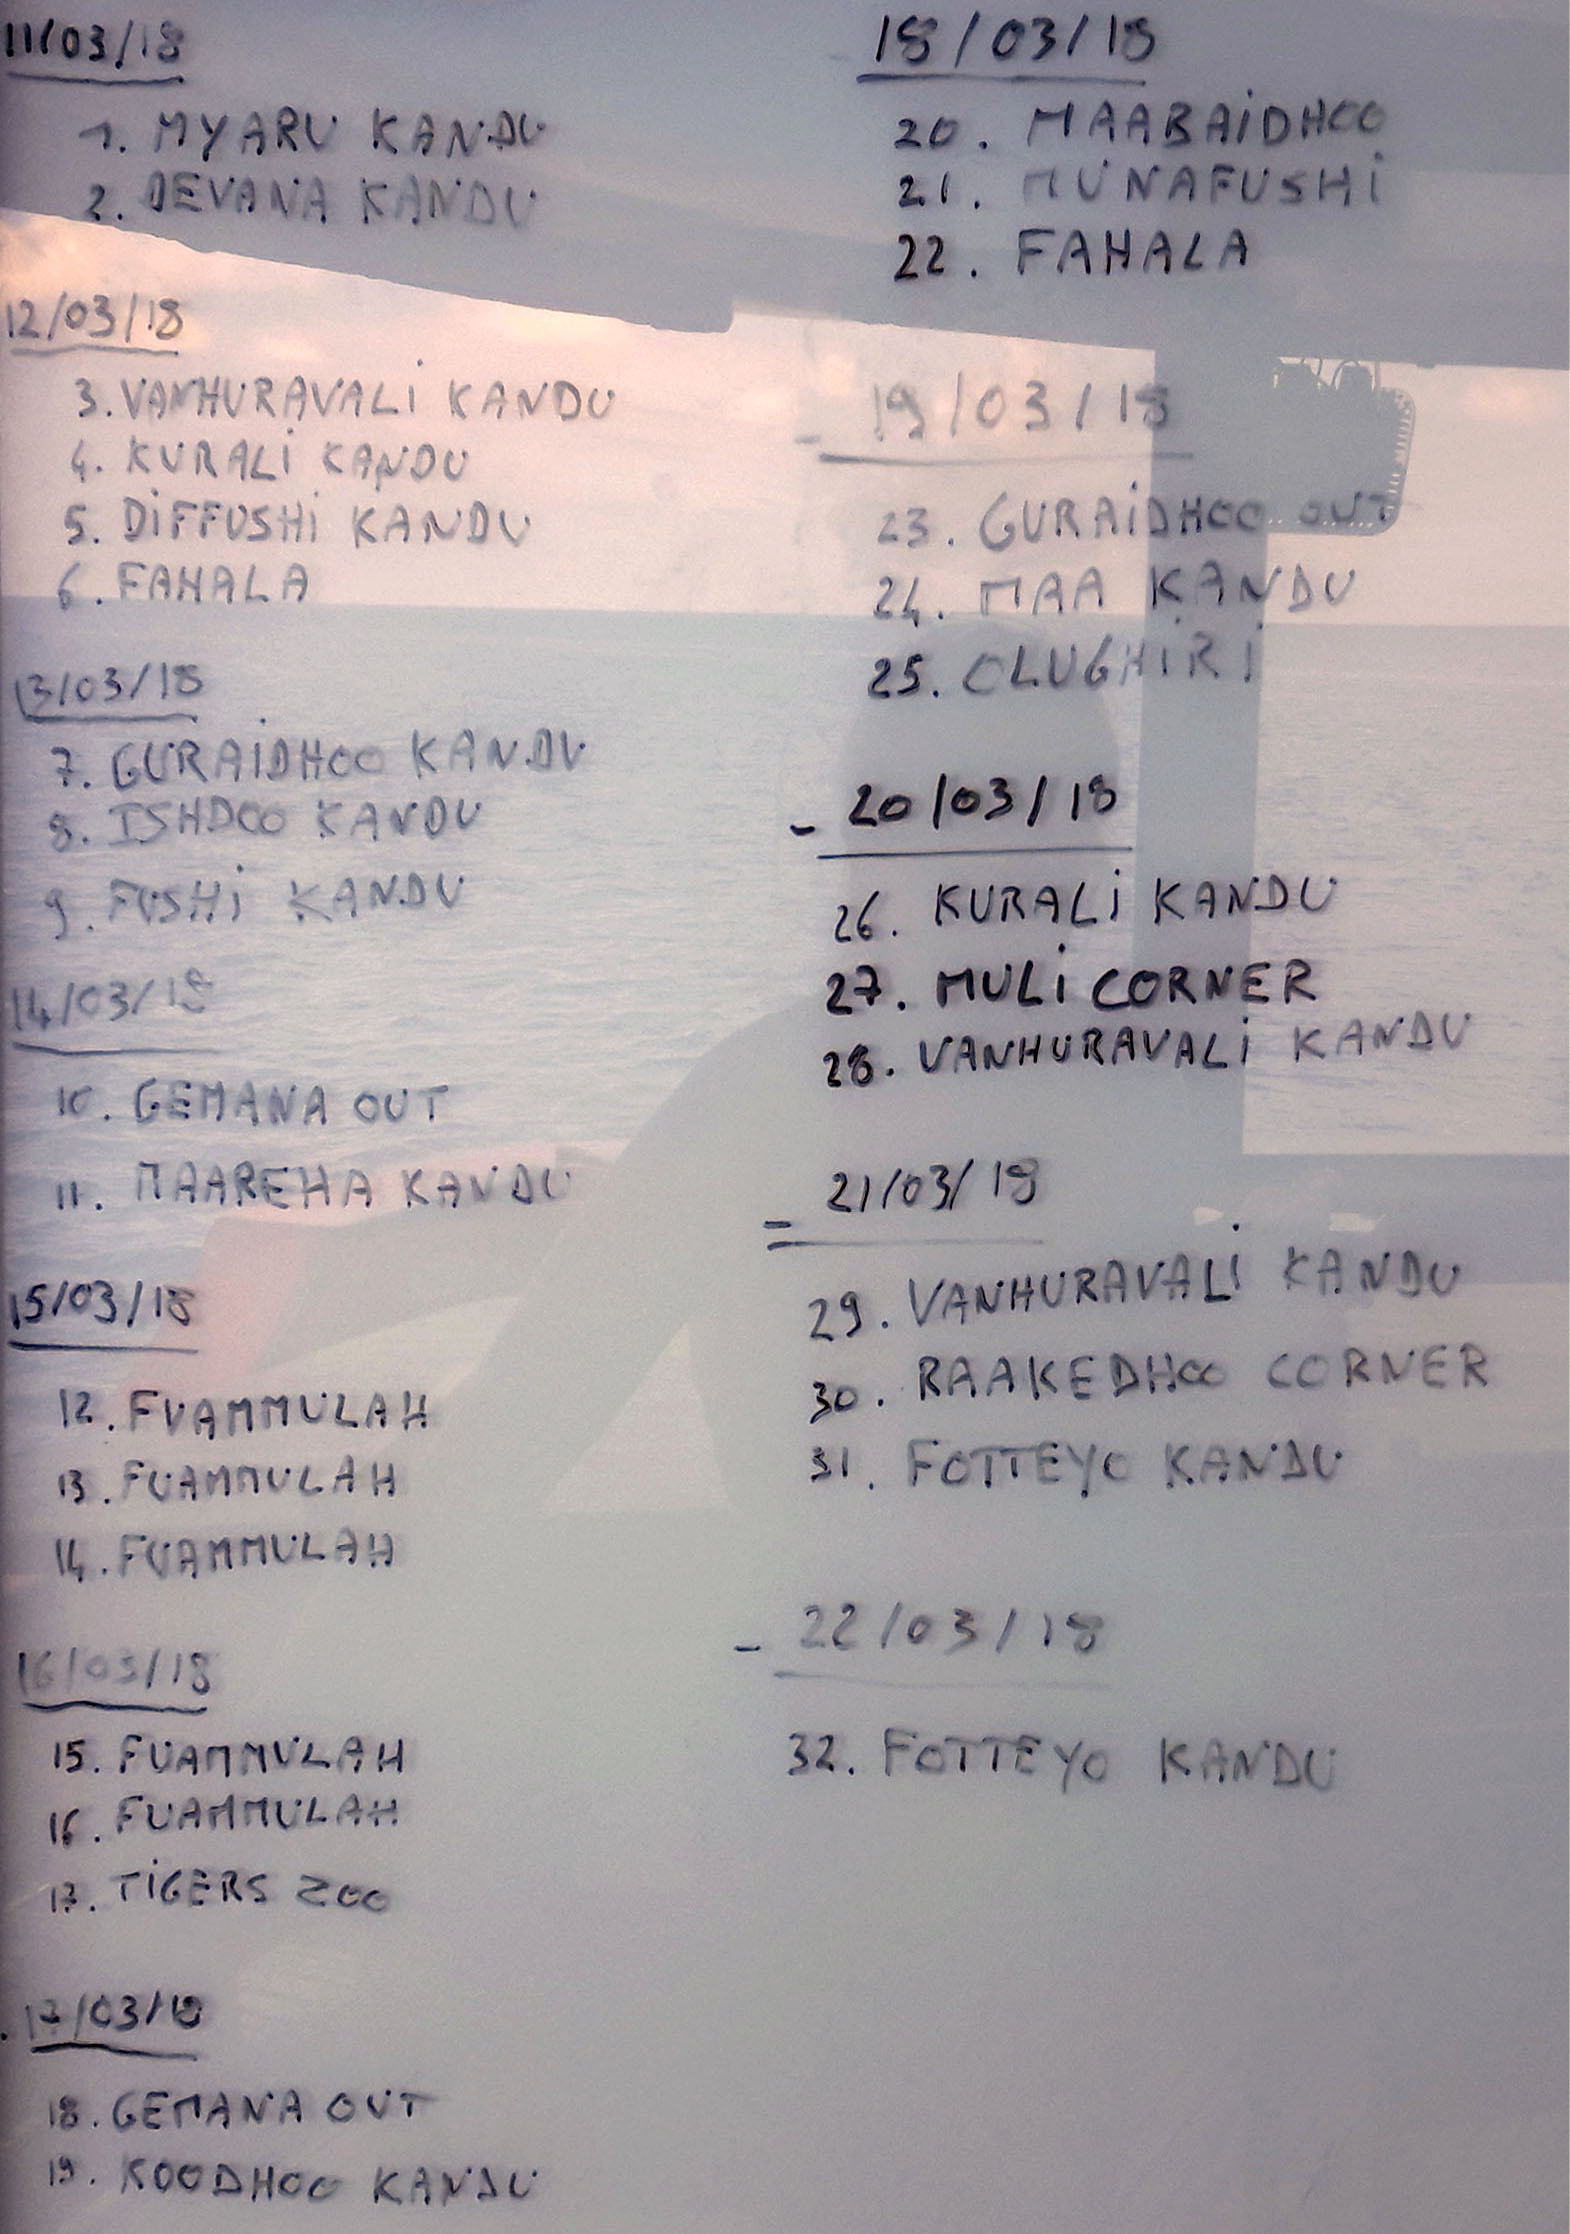 11/03/18
1. MYARU KANDU
2. DEVANA KANDU
12/03/18
3. VANHURAVALi KANDU
4. KURALi KANDU
5. DiFFUSHi KANDU
6. FAHALA
13/03/18
7. GURAiDHOO KANDU
8. ISHDOO KANDU
9. FUSHi KANDU
14/03/18
10. GEMANA OUT
11. MAAREHA KANDU
15/03/18
12. FUAMMULAH
13. FUAMMULAH
14. FUAMMULAH
16/03/18
15. FUAMMULAH
16. FUAMMULAH
17. TiGERS ZOO
17/03/18
18. GEMANA OUT
19. KOODHOO KANDU
18/03/18
20. MAABAiDHOO
21. MUNAFUSHi
22. FAHALA
- 19/03/18
23. GURAiDHOO OUT
24. MAA KANDU
25. OLUGHiRi
- 20/03/18
26. KURALi KANDU
27. MULi CORNER
28. VANHURAVALi KANDU
- 21/03/18
29. VANHURAVALi KANDU
30. RAAKEDHOO CORNER
31. FOTTEYO KANDU
- 22/03/18
32. FOTTEYO KANDU